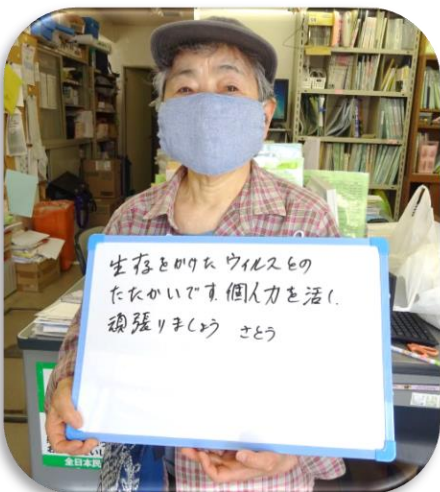 生存をかけたウィルスとの
たたかいです。個人力を活し、
頑張りましょう さとう
全日本民